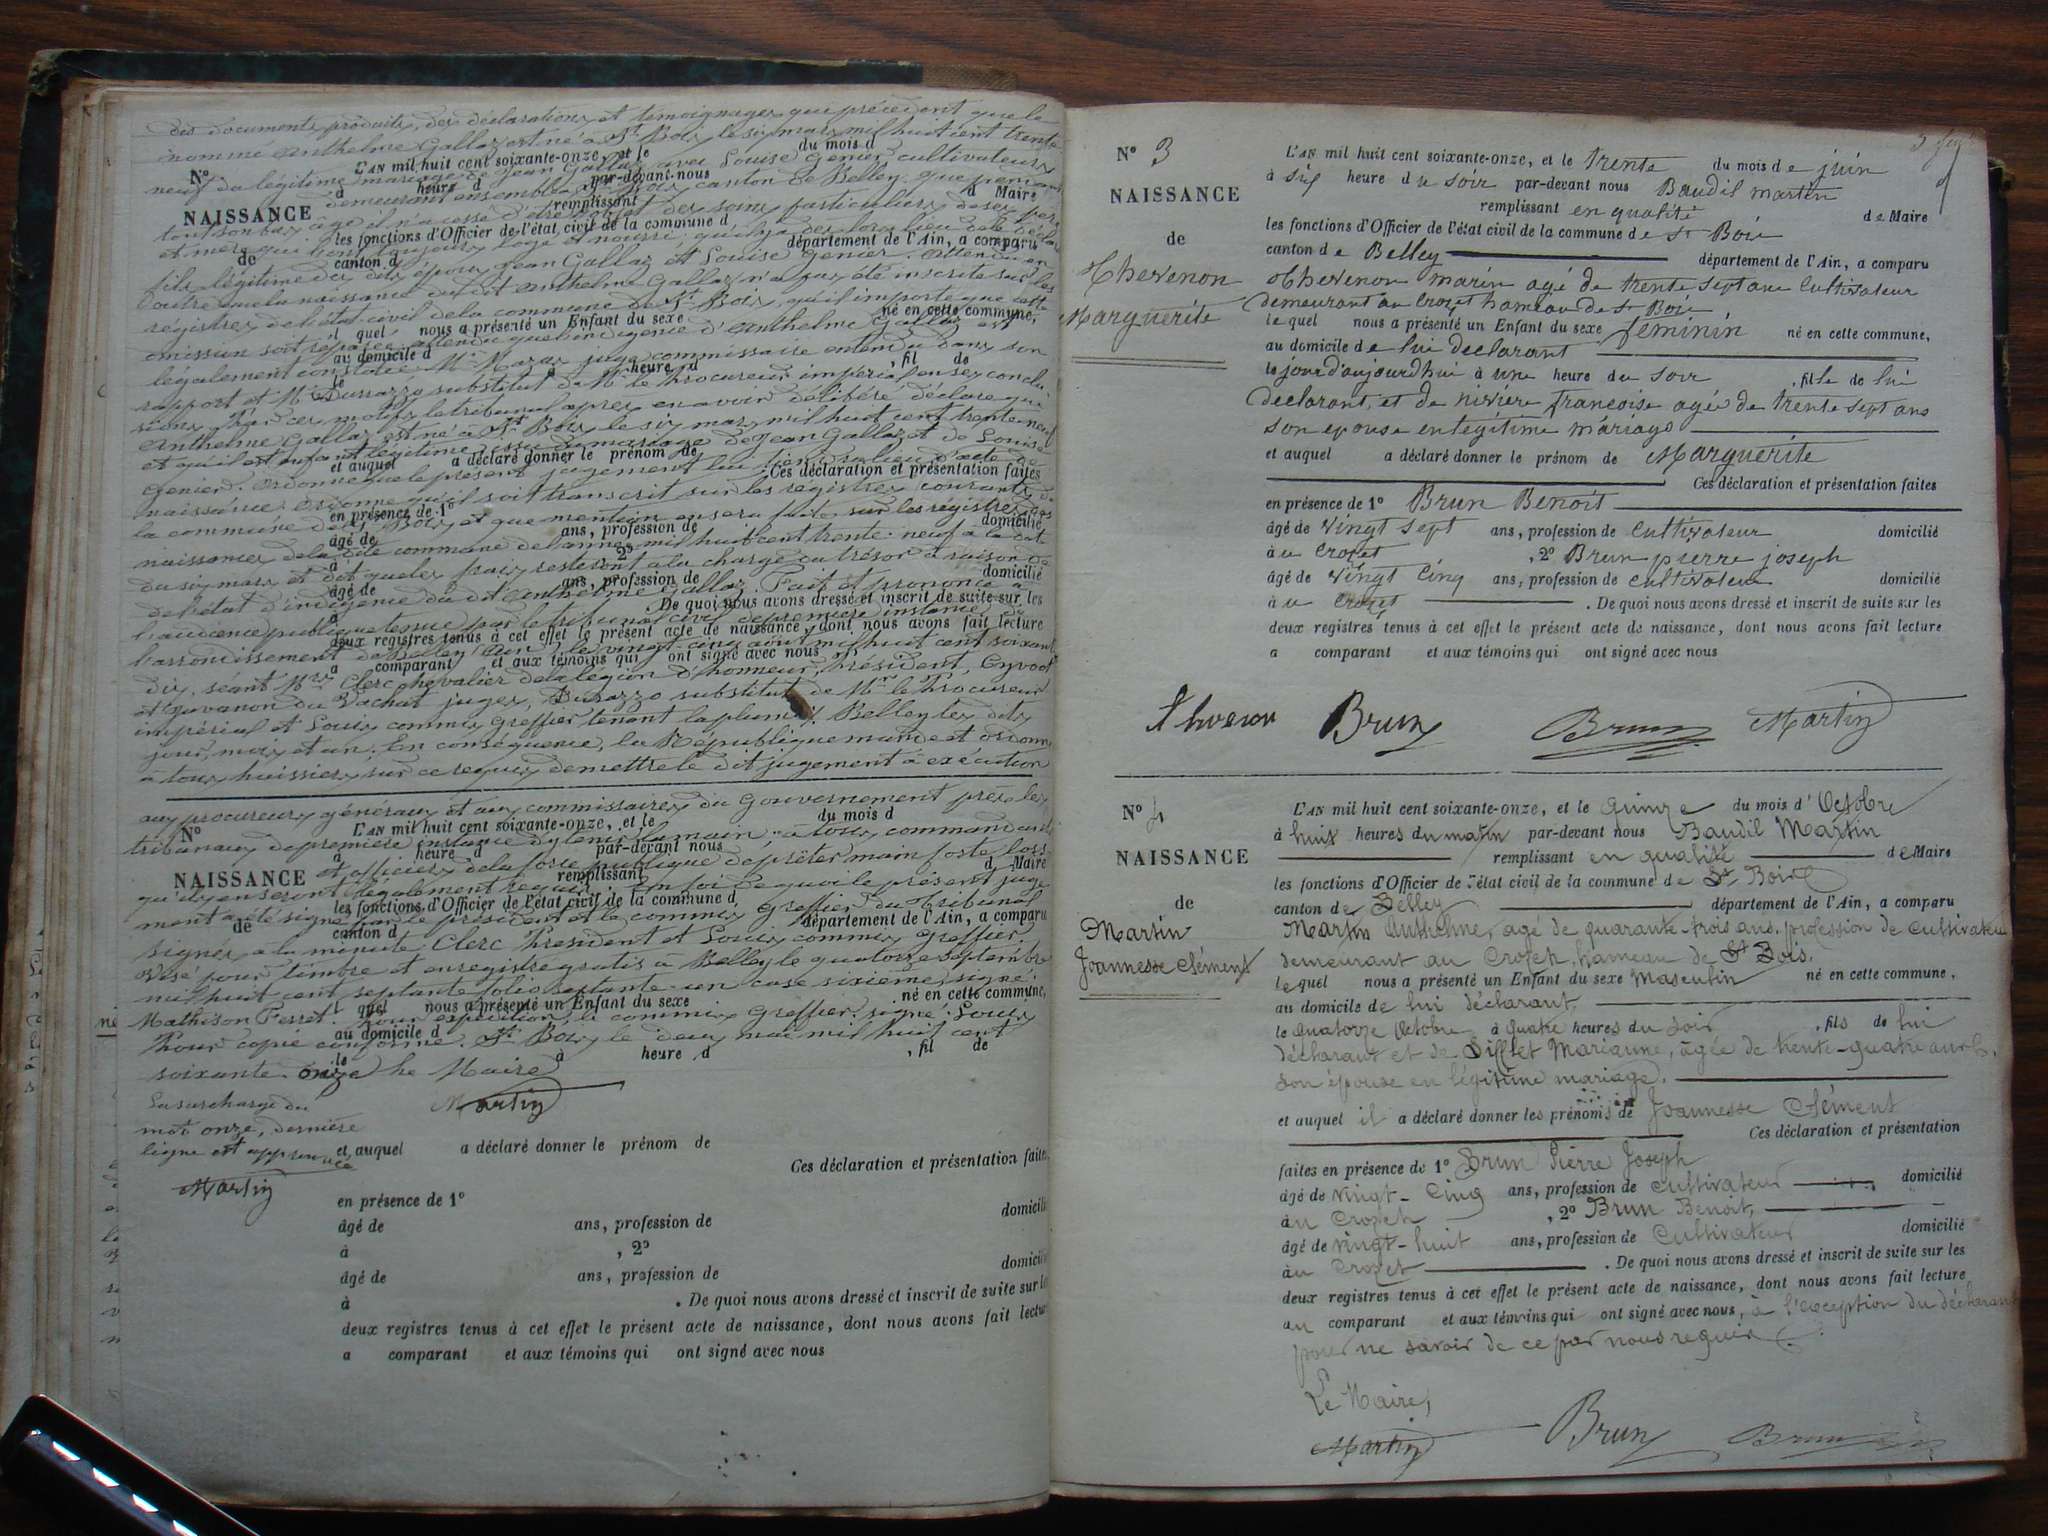 des documents produits, des déclarations et témoignages que précèdent que le
nommé Anthelme Gallaz est né à St Bois le six mars mil huit cent trente
neuf du légitime mariage de Jean Gallaz avec Louise Genier cultivateurs
demeurant ensemble à St Bois canton de Belley, que pendant
tout son bas âge il n'a cessé d'être l'objet des soins particuliers de ses père
et mère qui l'ont toujours logé et nourri, qu'il y a dès lors lieu de le déclarer
fils légitime des dits époux Jean Gallaz et Louise Genier. Attendu en
outre que la naissance du dit Anthelme Gallaz n'a pas été inscrite sur les
régistres de l'état civil de la commune de St Bois, qu'il importe que cette
omission soit réparée attendu que l'indigence d'Anthelme Gallaz est
légalement constatée Mr juge commissaire entendu dans son
rapport et Mr Durazzo substitut de Mr le Procureur impérial en ses conclu
sions. Par ces motifs le tribunal après en avoir délibéré déclare que
Anthelme Gallaz est né à St Bois le six mars mil huit cent trente-neuf
et qu'il est enfant légitime issu du mariage de Jean Gallaz et de Louise
Genier. Ordonne que le présent jugement lui tiendra lieu d'acte de
naissance. Ordonne qu'il soit transcrit sur les régistres courants de
la commune de St Bois et que mention en sera faite sur les régistres des
naissances de la dite commune de l'année mil huit cent trente-neuf à la date
du six mars et dit que les frais resteront à la charge du trésor à raison de
de l'état d'indigence du dit Anthelme Gallaz. Fait et prononcé à
l'audience publique tenue par le tribunal civil de première instance de
l'arrondissement de Belley Ain, le vingt-cinq août mil huit cent soixante
dix, séant Mrs Clerc chevalier de la légion d'honneur, Président, Cyvoct
et Juvanon du Vachat juges, Durazzo substitut de Mr le Procureur
impérial et Louis commis greffier tenant la plume. Belley les dits
jour, mois et an. En conséquence, la République mande et ordonne
à tous huissiers sur ce requis de mettre le dit jugement à exécution
aux procureurs généraux et aux commissaires du Gouvernement près les
tribunaux de première instance d'y tenir la main, à tous commandants
et officiers de la force publique de prêter main forte lors
qu'ils en seront légalement requis. En foi de quoi le présent juge
ment a été signé par le président et le commis greffier du Tribunal
signés à la minute Clerc Président et Louis commis greffier.
Visé pour timbre et enregistré gratis à Belley le quatorze septembre
mil huit cent septante folio septante-un case sixième, signé:
Mathison Ferret. Pour expédition, le commis greffier signé: Louis
Pour copie conforme. St Bois, le deux mai mil huit cent
soixante-onze Le Maire
Martin
La surcharge du
mot onze, dernière
ligne est approuvée
Martin
N°
NAISSANCE
de
L'AN mil huit cent soixante-onze, et le du mois d
à heure d par-devant nous
d Maire
remplissant
les fonctions d'Officier de l'état civil de la commune d
canton d département de l'Ain, a comparu
quel nous a présenté un Enfant du sexe né en cette commune,
au domicile d
le à heure d , fil de
et auquel a déclaré donner le prénom de
Ces déclaration et présentation faites
en présence de 1°
âgé de ans, profession de domicilié
à , 2°
âgé de ans, profession de domicilié
à . De quoi nous avons dressé et inscrit de suite sur les
deux registres tenus à cet effet le présent acte de naissance, dont nous avons fait lecture
a comparant et aux témoins qui ont signé avec nous
N°
NAISSANCE
de
L'AN mil huit cent soixante-onze, et le du mois d
à heure d par-devant nous
d Maire
remplissant
les fonctions d'Officier de l'état civil de la commune d
canton d département de l'Ain, a comparu
quel nous a présenté un Enfant du sexe né en cette commune,
au domicile d
le à heure d , fil de
et auquel a déclaré donner le prénom de
Ces déclaration et présentation faites
en présence de 1°
âgé de ans, profession de domicilié
à , 2°
âgé de ans, profession de domicilié
à . De quoi nous avons dressé et inscrit de suite sur les
deux registres tenus à cet effet le présent acte de naissance, dont nous avons fait lecture
a comparant et aux témoins qui ont signé avec nous
N° 3
NAISSANCE
de
Thevenon
Marguerite
L'AN mil huit cent soixante-onze, et le trente du mois de juin
à six heure du soir par-devant nous Baudil martin
remplissant en qualité de Maire
les fonctions d'Officier de l'état civil de la commune de St Boie
canton de Belley département de l'Ain, a comparu
Thevenon marin agé de trente sept ans Cultivateur
demeurant au Crozet hameau de St Boie
lequel nous a présenté un Enfant du sexe feminin né en cette commune,
au domicile de lui declarant
le jourd'aujourdhui à une heure du soir , fille de lui
declarant, et de nivière francoise agée de trente sept ans
son epouse en legitime mariage
et auquel a déclaré donner le prénom de Marguerite
Ces déclaration et présentation faites
en présence de 1° Brun Benoit
âgé de vingt sept ans, profession de cultivateur domicilié
àu Crozet , 2° Brun pierre joseph
âgé de vingt Cinq ans, profession de cultivateur domicilié
àu Crozet . De quoi nous avons dressé et inscrit de suite sur les
deux registres tenus à cet effet le présent acte de naissance, dont nous avons fait lecture
a comparant et aux témoins qui ont signé avec nous
Brun Brun Martin
N° 4
NAISSANCE
de
Martin
Joannesse Clément
L'AN mil huit cent soixante-onze, et le Quinze du mois d'Octobre
à huit heures du matin par-devant nous Baudil Martin
remplissant en qualité de Maire
les fonctions d'Officier de l'état civil de la commune de St Bois
canton de Belley département de l'Ain, a comparu
Martin Anthelme, agé de quarante-trois ans, profession de cultivateur
demeurant au Crozet, hameau de St Bois.
lequel nous a présenté un Enfant du sexe Masculin né en cette commune,
au domicile de lui déclarant,
le quatorze Octobre à quatre heures du soir , fils de lui
déclarant et de Sifflet Marianne, âgée de trente-quatre ans,
son épouse en légitime mariage.
et auquel il a déclaré donner les prénoms de Joannesse Clément
Ces déclaration et présentation
faites en présence de 1° Brun Pierre Joseph
âgé de vingt-Cinq ans, profession de cultivateur domicilié
àu Crozet , 2° Brun Benoit,
âgé de vingt-huit ans, profession de Cultivateur domicilié
àu Crozet . De quoi nous avons dressé et inscrit de suite sur les
deux registres tenus à cet effet le présent acte de naissance, dont nous avons fait lecture
au comparant et aux témoins qui ont signé avec nous, à l'exception du déclarant
pour ne savoir de ce par nous requis.
Le Maire,
Martin Brun Brun